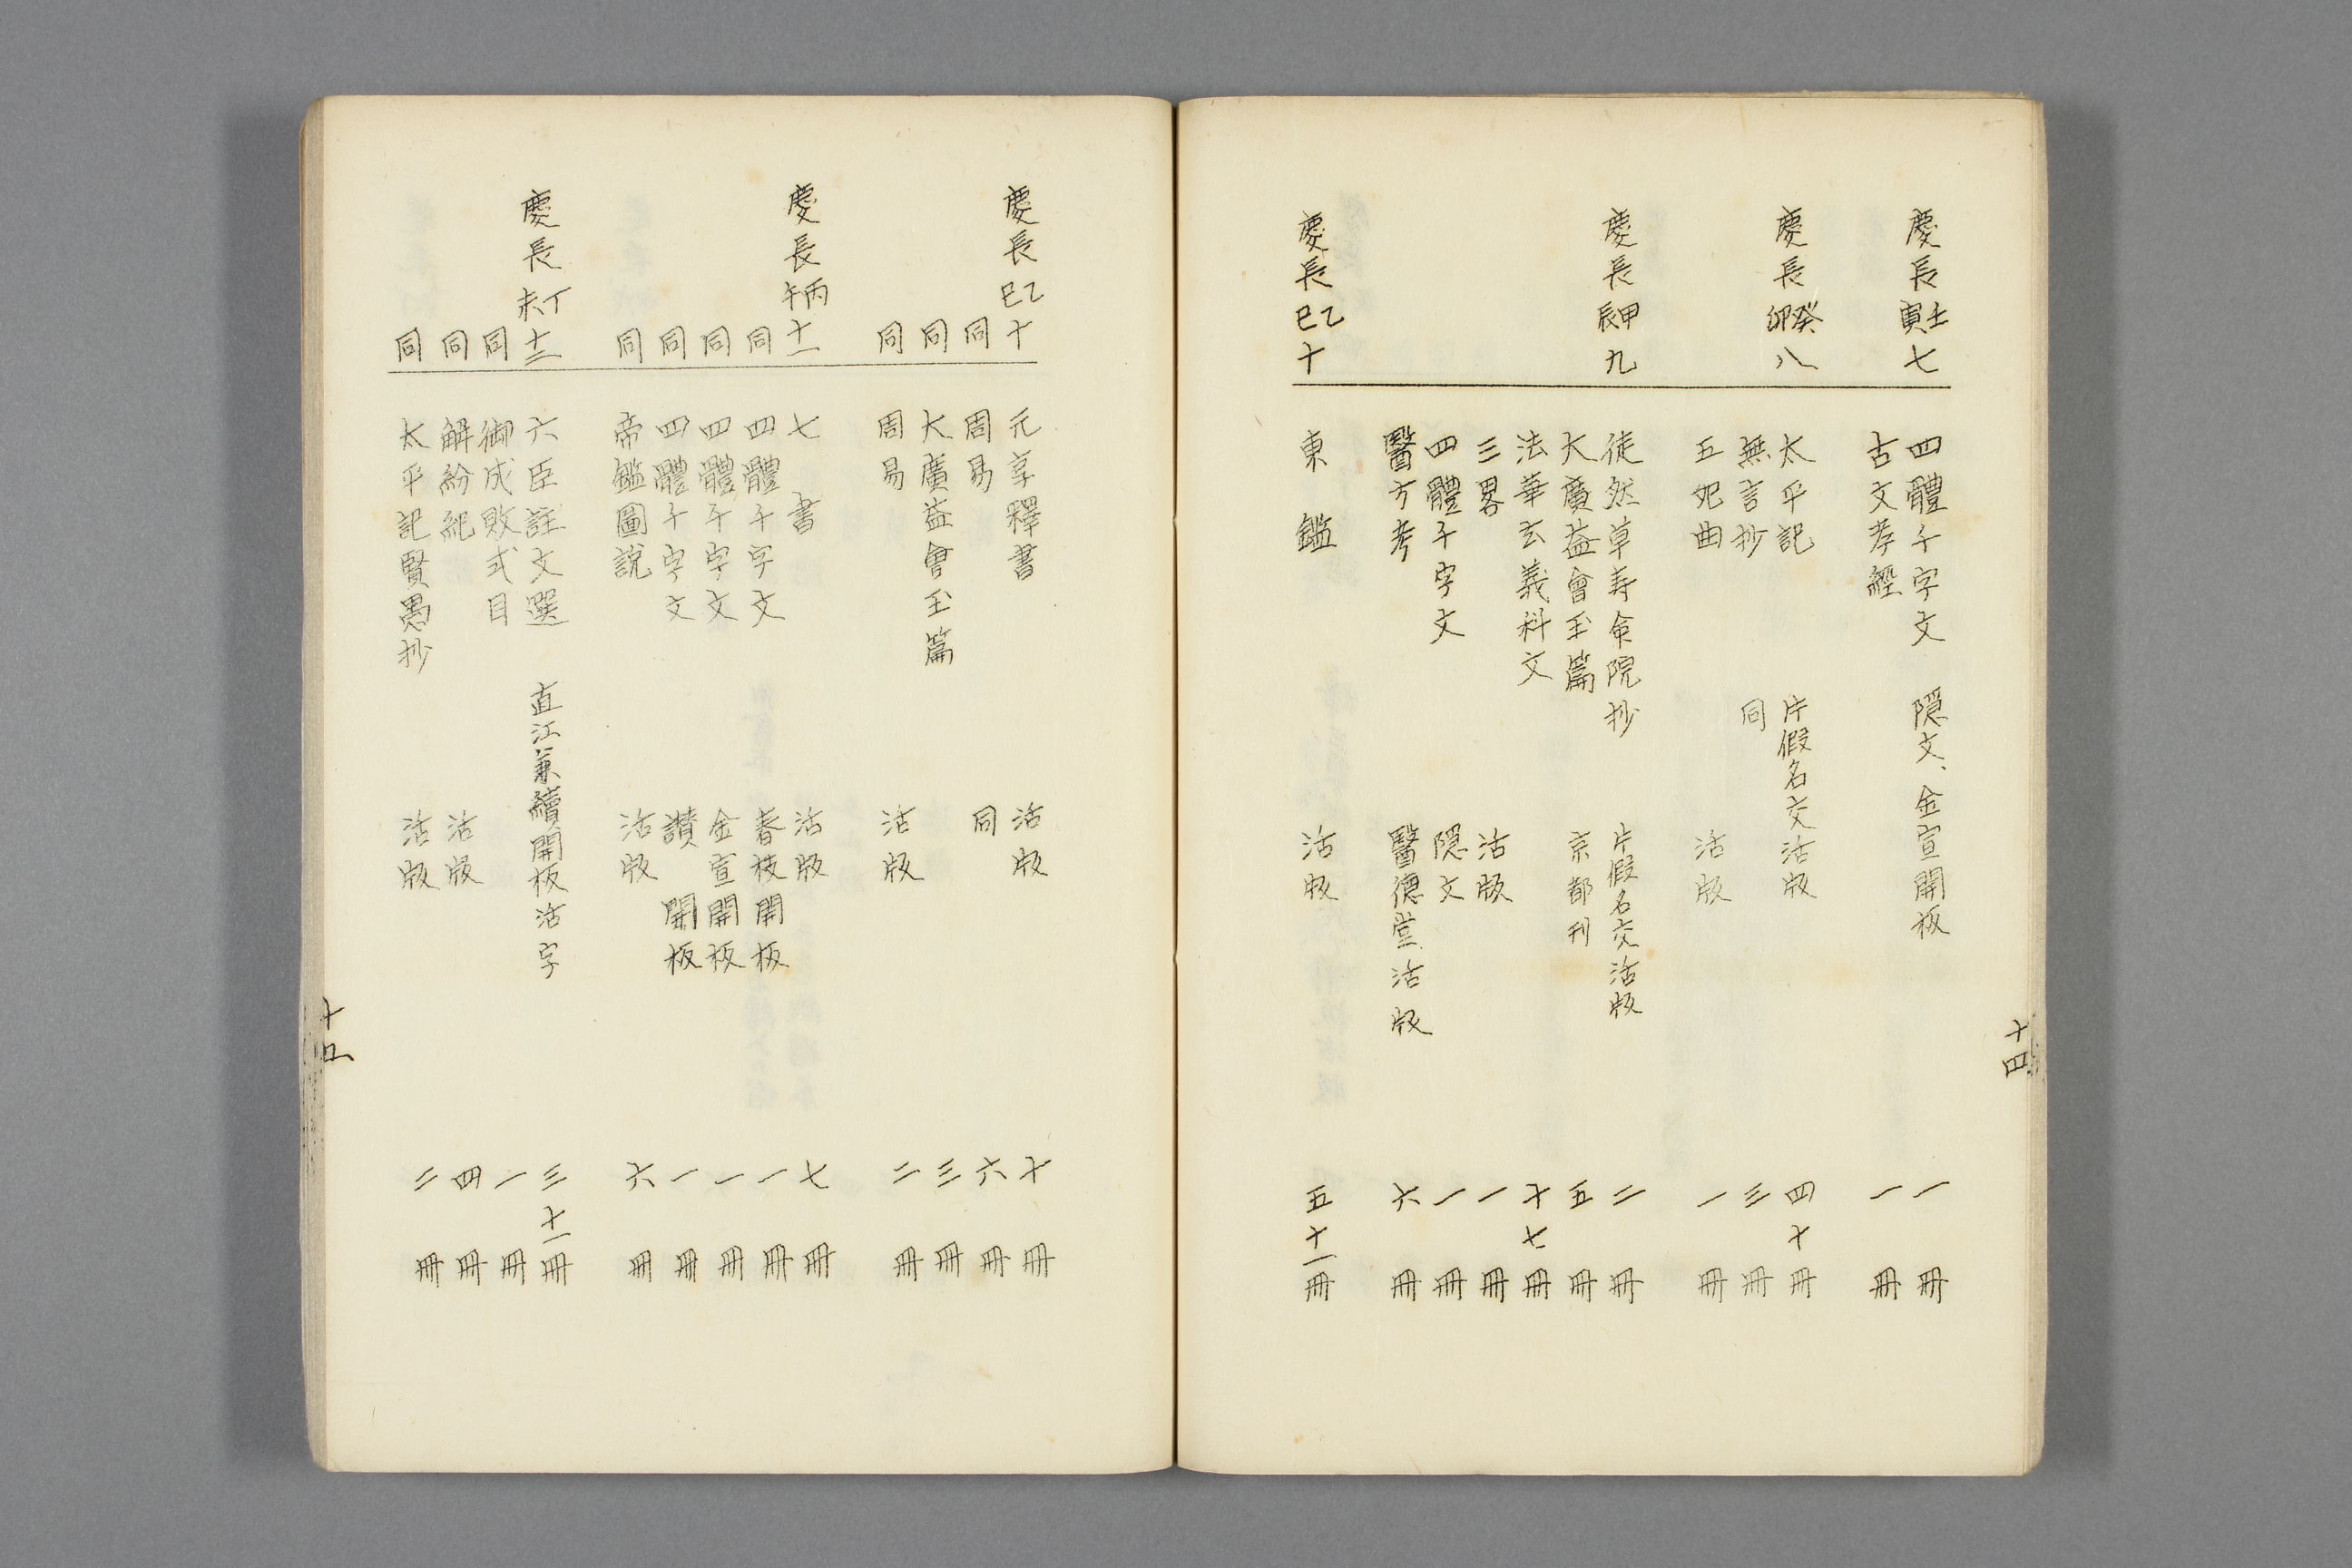 慶長壬寅七 四體千字文 隠文、金宣開板 一冊
古文孝經 一冊
慶長癸卯八 太平記 片假名交活版 四十冊
無言抄 同 三冊
五妃曲 活版 一冊
慶長甲辰九 徒然草寿命院抄 片假名交活版 二冊
大廣益會玉篇 京都刊 五冊
法華玄義科文 十七冊
三畧 活版 一冊
四體千字文 隠文 一冊
醫方考 醫德堂活版 六冊
慶長乙巳十 東鑑 活版 五十一冊
十四
慶長乙巳十 元亨釋書 活版 十冊
同 周易 同 六冊
同 大廣益會玉篇 三冊
同 周易 活版 二冊
慶長丙午十一 七書 活版 七冊
同 四體千字文 春枝開板 一冊
同 四體千字文 金宣開板 一冊
同 四體千字文 讃開板 一冊
同 帝鑑圖說 活版 六冊
慶長丁未十二 六臣註文選 直江兼續開板活字 三十一冊
同 御成敗式目 一冊
同 解紛紀 活版 四冊
同 太平記賢愚抄 活版 二冊
十四